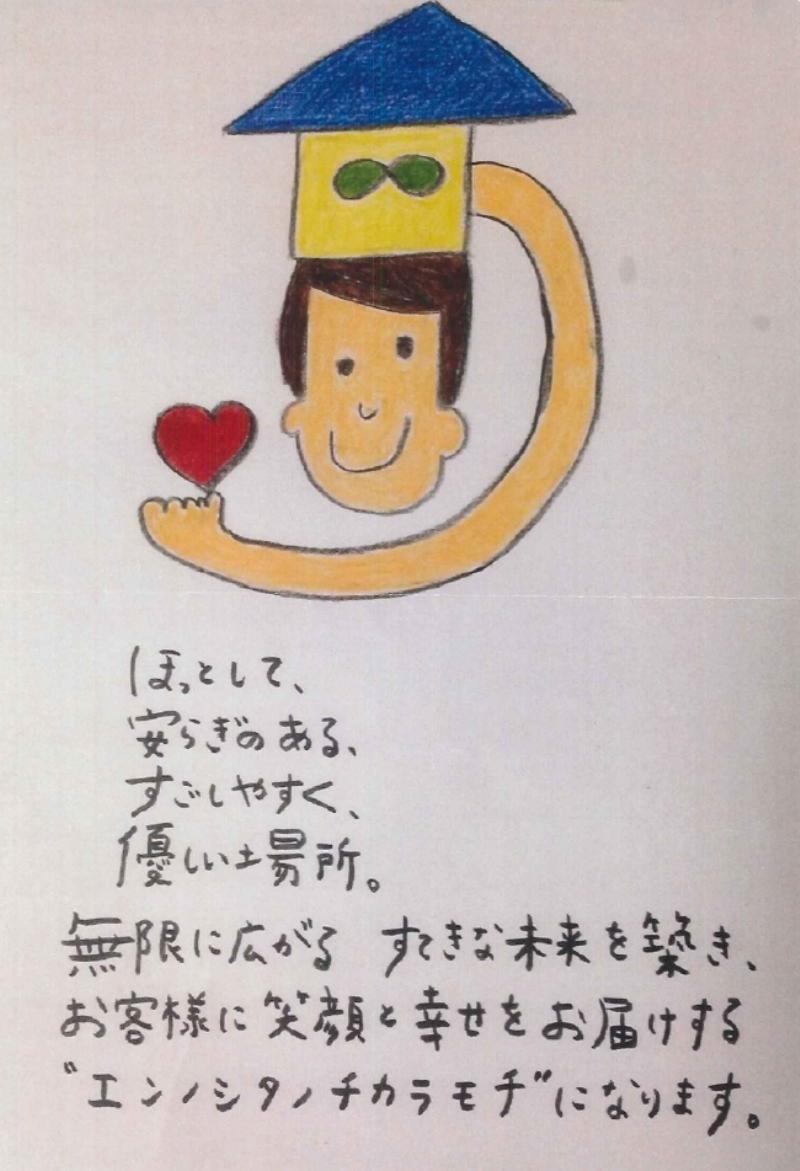 ほっとして、
安らぎのある、
すごしやすく、
優しい場所。
無限に広がる すてきな未来を築き、
お客様に笑顔と幸せをお届けする
"エンノシタノチカラモチ"になります。